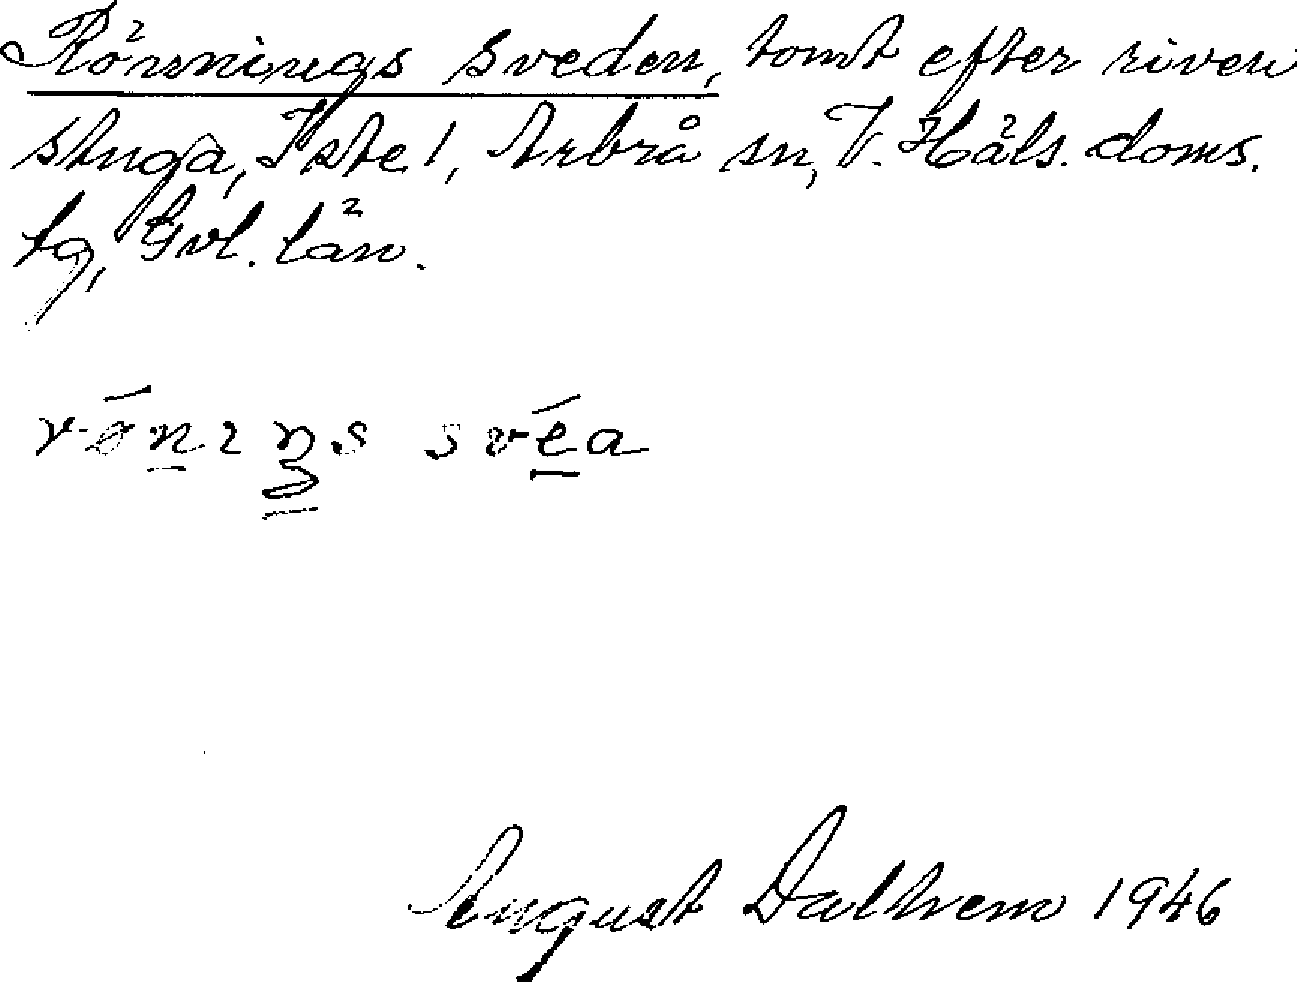 Rönnings sveden, tomt efter riven
stuga, Iste 1, Arbrå sn, V. Häls. doms.
tg, Gvl. län.
August Dalhem 1946